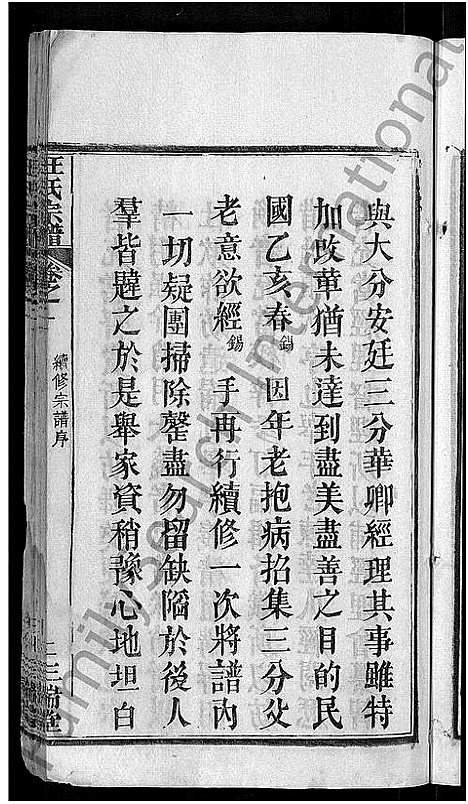 與大分安廷三分華卿經理其事雖特
加改革猶未達到盡美盡善之目的民
國乙亥春錫 因年老抱病招集三分父
老意欲經錫 手再行續修一次將譜內
一切疑團掃除罄盡勿留缺陷於後人
羣皆韙之於是舉家資稍豫心地坦白
汪氏宗譜
卷之一
續修宗譜序
三瑞堂
FamilySearch International